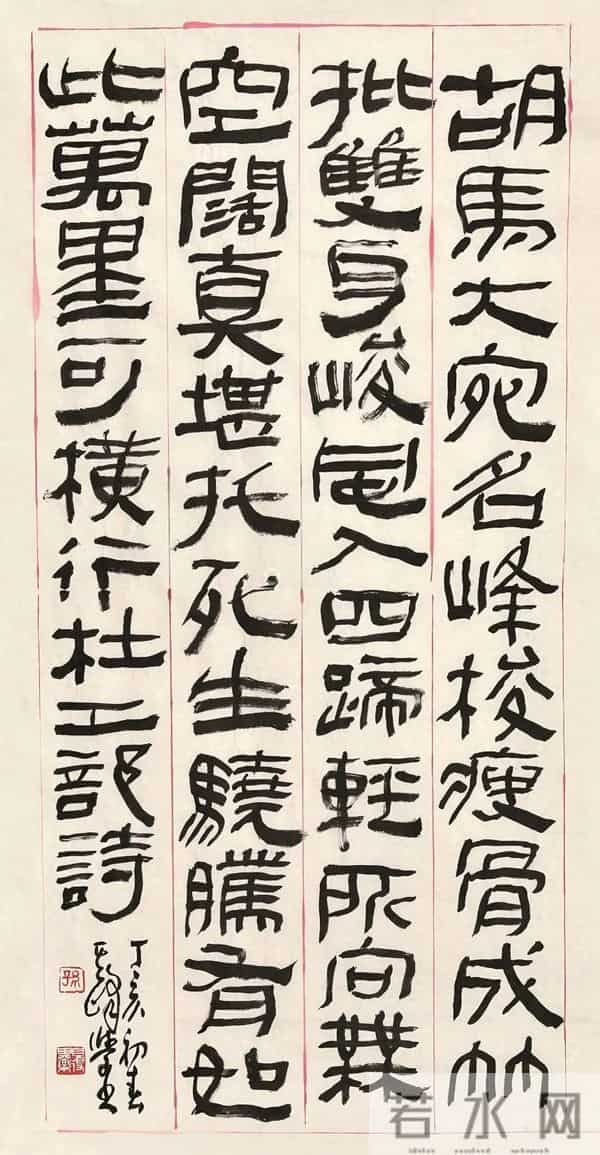 胡馬大宛名峰棱瘦骨成竹
批雙耳峻風入四蹄輕所向無
空闊真堪托死生驍騰有如
此萬里可橫行杜工部詩
丁亥初春
若水网